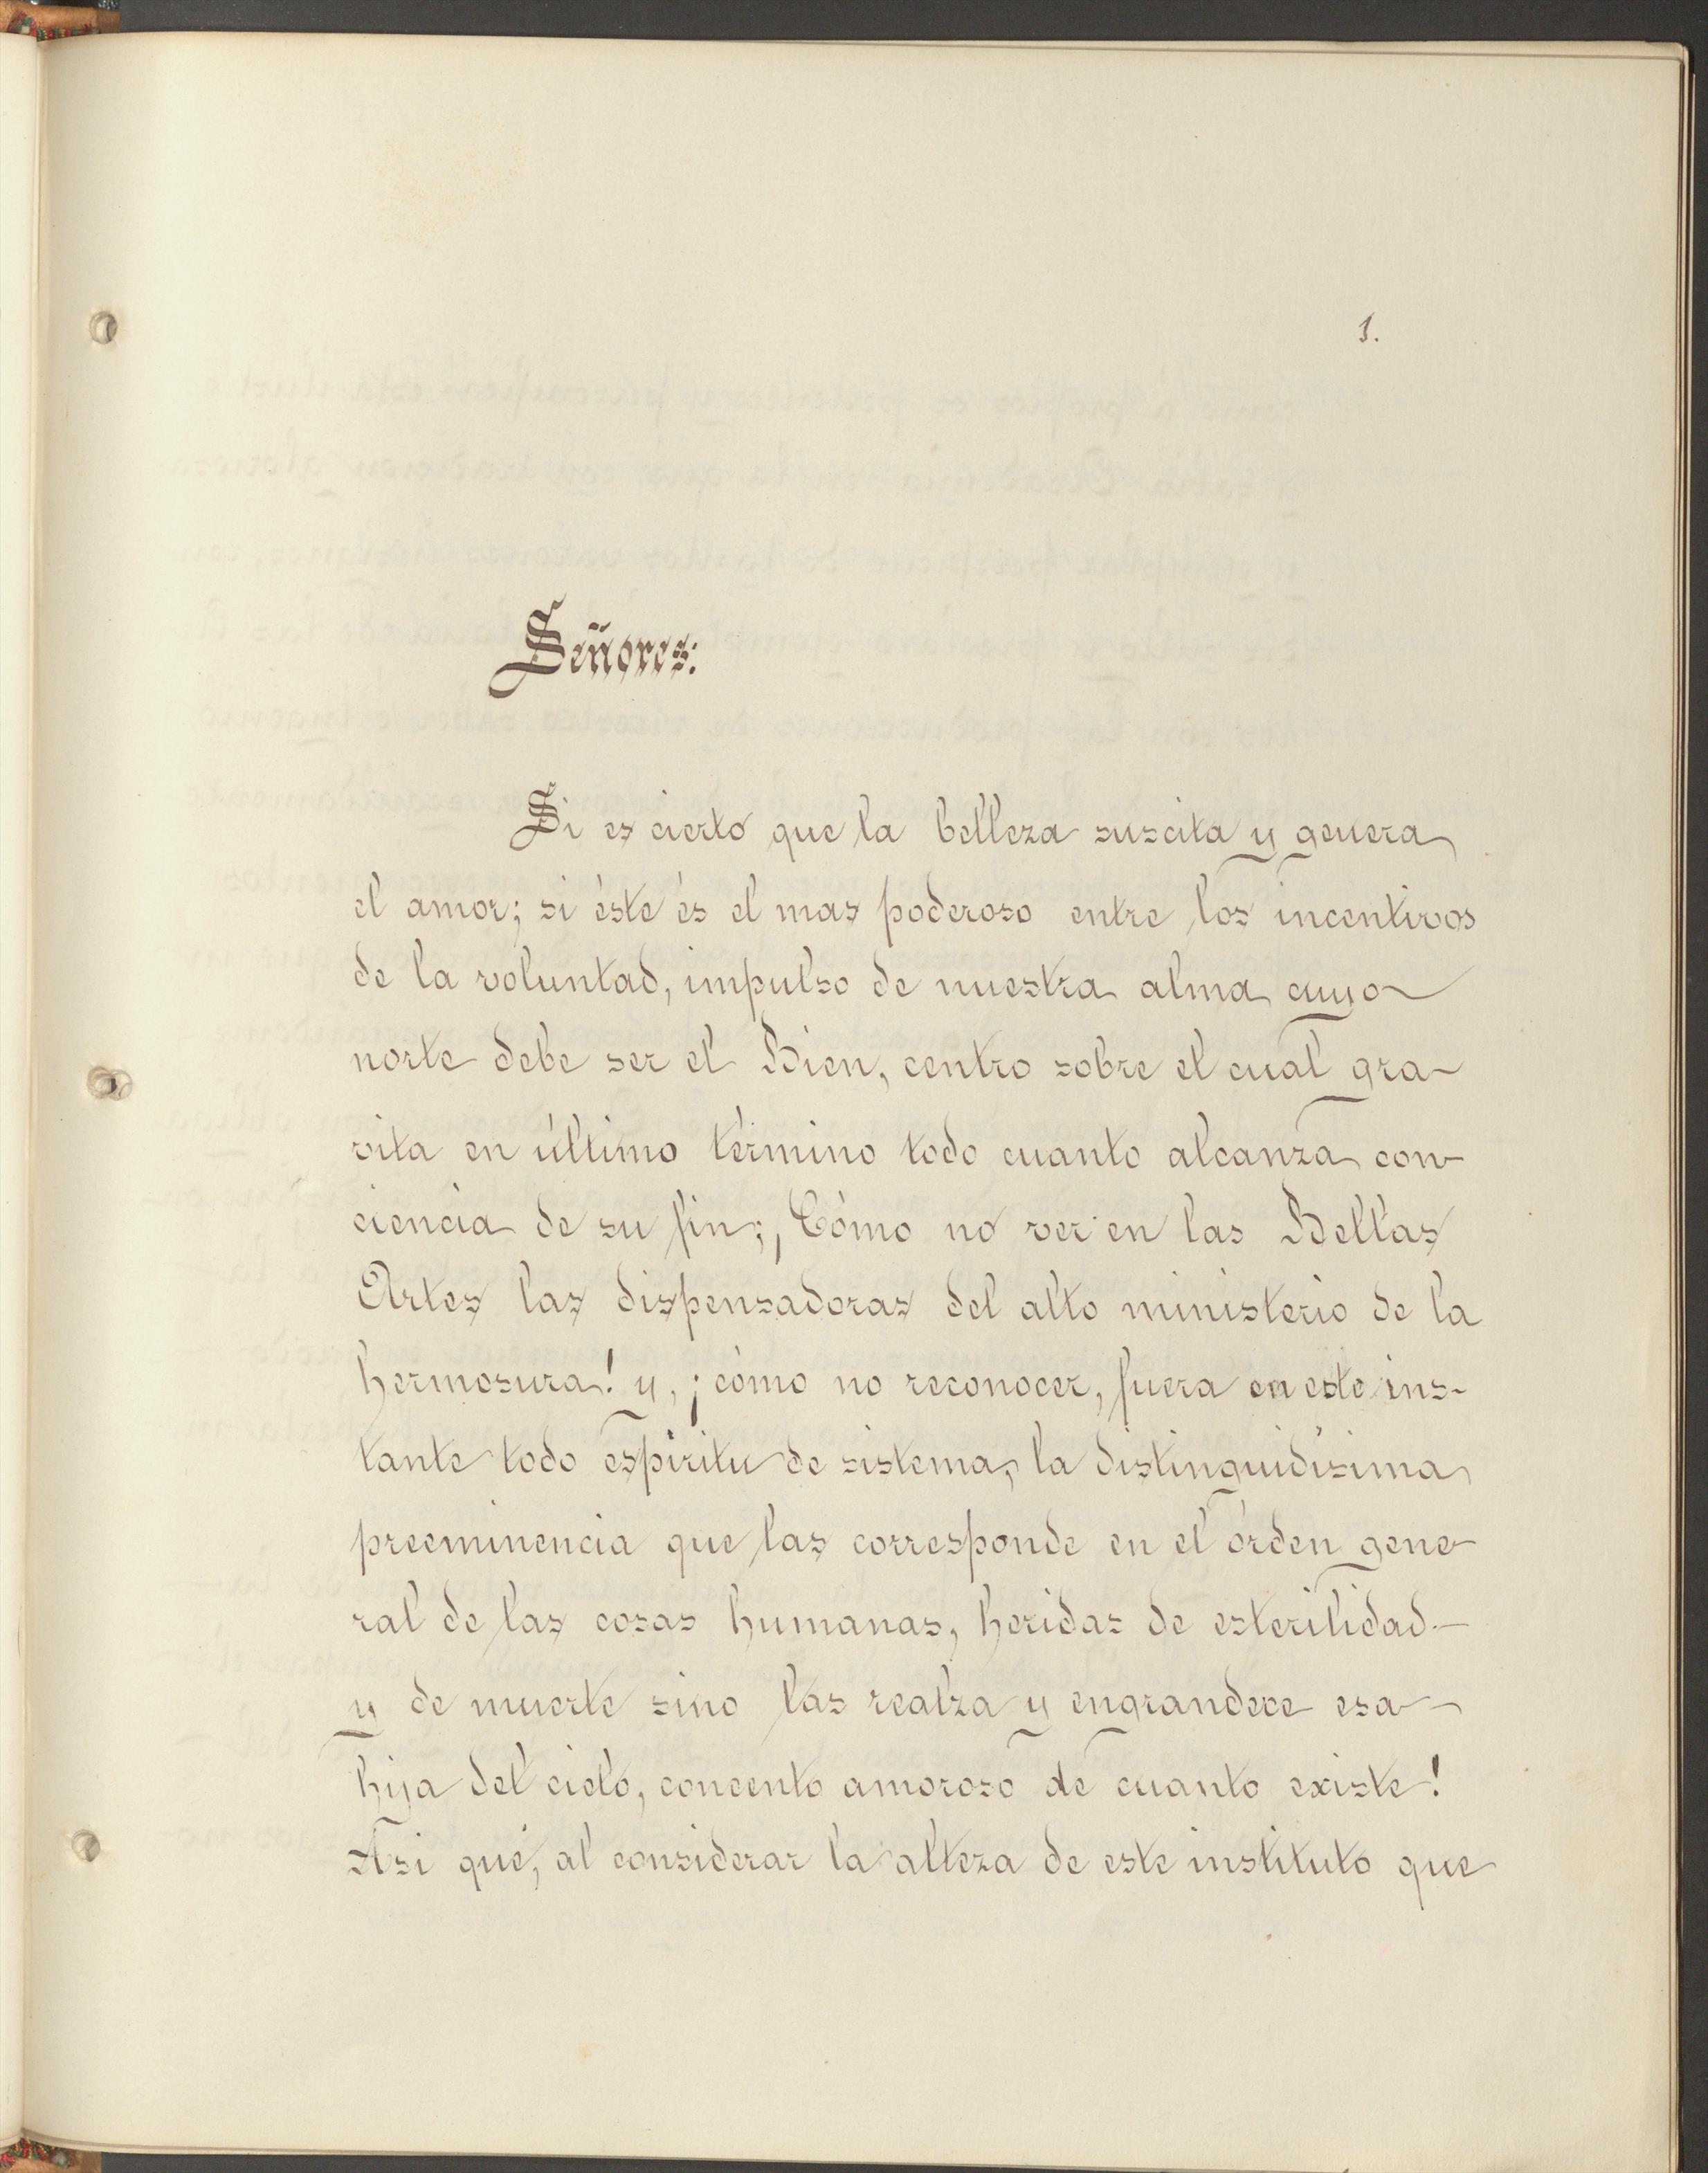 1.
Señores:
Si es cierto que la belleza suscita y genera
el amor; si éste és el mas poderoso entre los incentivos
de la voluntad, impulso de nuestra alma cuyo
norte debe ser el Bien, centro sobre el cual gra-
vita en último término todo cuanto alcanza con-
ciencia de su fin; ¡Cómo no ver en las Bellas
Artes las dispensadoras del alto ministerio de la
hermosura! y, ¡cómo no reconocer, fuera en este ins-
tante todo espíritu de sistema, la distinguidísima
preeminencia que las corresponde en el órden gene-
ral de las cosas humanas, heridas de esterilidad
y de muerte sino las realza y engrandece esa
hija del cielo, concento amoroso de cuanto existe!
Asi qué, al considerar la alteza de este instituto que